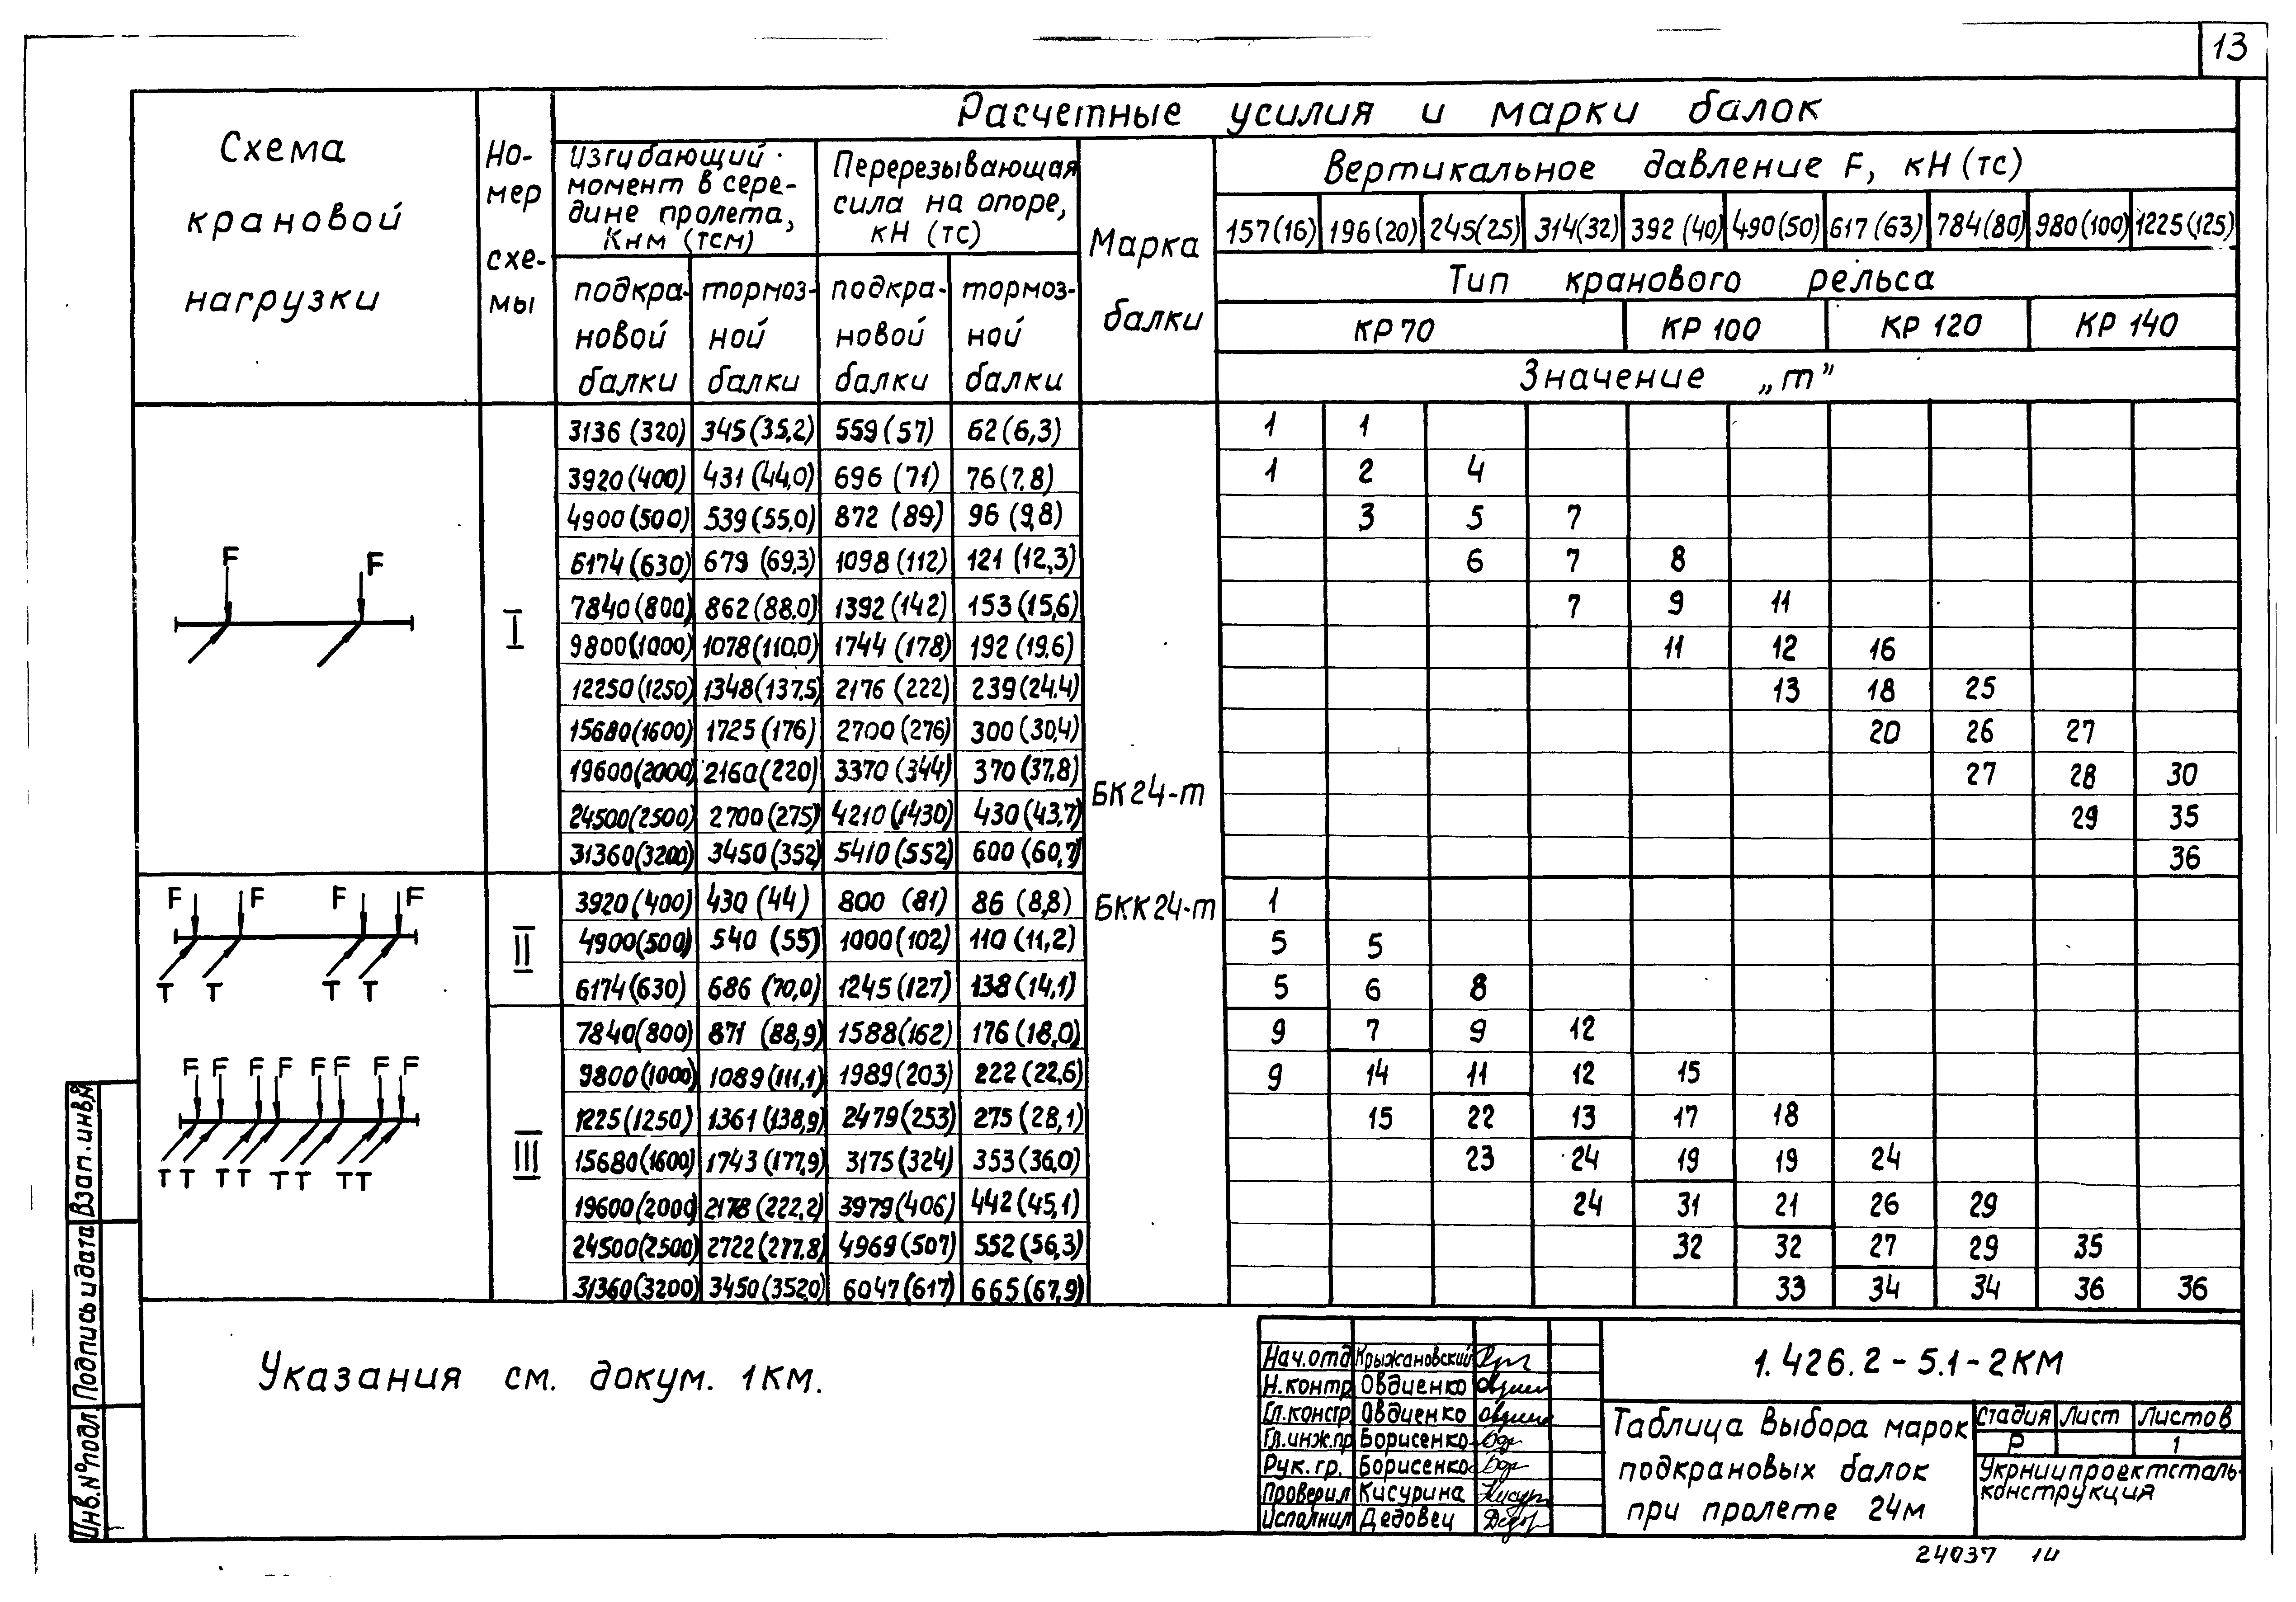 13
Расчетные усилия и марки балок
Схема крановой нагрузки
Но-
мер
схе-
мы
Изгибающий
момент в сере-
дине пролета,
Кнм (тсм)
Перерезывающая
сила на опоре,
кН (тс)
Марка
балки
Вертикальное давление F, кН (тс)
157(16) 196(20) 245(25) 314(32) 392 (40) 490(50) 617 (63) 784(80) 980(100) 1225(125)
Тип кранового рельса
подкра-
новой
балки
тормоз-
ной
балки
подкра-
новой
балки
тормоз-
ной
балки
КР 70 КР 100 КР 120 КР 140
Значение „m"
3136 (320) 345(35,2) 559(57) 62(6,3) 1 1
3920(400) 431(44,0) 696 (71) 76(7.8) 1 2 4
4900(500) 539(55,0) 872 (89) 96 (9,8) 3 5 7
6174(630) 679 (69,3) 1098(112) 121 (12,3) 6 7 8
7840(800) 862(88.0) 1392(142) 153(15,6) 7 9 11
9800(1000) 1078(110,0) 1744 (178) 192 (19.6) 11 12 16
12250(1250) 1348(137.5) 2176 (222) 239(24.4) 13 18 25
15680(1600) 1725(176) 2700(276) 300(30,4) 20 26 27
19600(2000) 2160(220) 3370(344) 370(37,8) 27 28 30
24500(2500) 2700(275) 4210(1430) 430(43,7) 29 35
31360(3200) 3450(352) 5410(552) 600(60,7) 36
F F
I
БК24-m
3920(400) 430(44) 800 (81) 86 (8,8) БКК24-m 1
4900(500) 540 (55) 1000(102) 110(11,2) 5 5
6174(630) 686 (70,0) 1245(127) 138(14,1) 5 6 8
F F F F
T T T T
II
7840(800) 871 (88,9) 1588(162) 176(18,0) 9 7 9 12
9800(1000) 1089(111,1) 1989(203) 222(22,6) 9 14 11 12 15
1225(1250) 1361(138,9) 2479(253) 275(28,1) 15 22 13 17 18
15680(1600) 1743(177,9) 3175(324) 353(36,0) 23 24 19 19 24
19600(2000) 2178(222,2) 3979(406) 442(45,1) 24 31 21 26 29
24500(2500) 2722(277.8) 4969(507) 552(56,3) 32 32 27 29 35
31360(3200) 3450(3520) 6047(617) 665(67,9) 33 34 34 36 36
F F F F F F F F
T T T T T T T T
III
Указания см. докум. 1КМ.
Нач.отд Крыжановский
Н.контр Овдиенко
Гл.констр. Овдиенко
Гл.инж.пр Борисенко
Рук.гр. Борисенко
Проверил Кисурина
Исполнил Дедовец
1.426.2-5.1-2КМ
Таблица выбора марок
подкрановых балок
при пролете 24м
Стадия Лист Листов
Р 1
Укрниипроектсталь-
конструкция
Взап.инв.№
Подпись и дата
Инв.№ подл.
24037 14